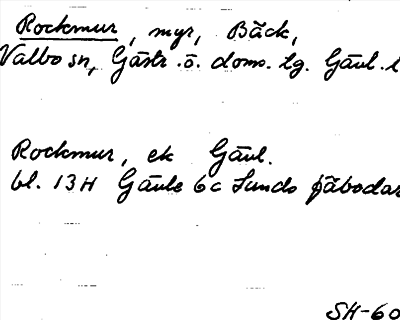 Rockmur, myr, Bäck,
Valbo sn, Gästr.ö. doms. lg. Gävl. l
Rockmur, ek Gävl.
bl. 13H Gävle 6c Lunds fäbodar
SH-60